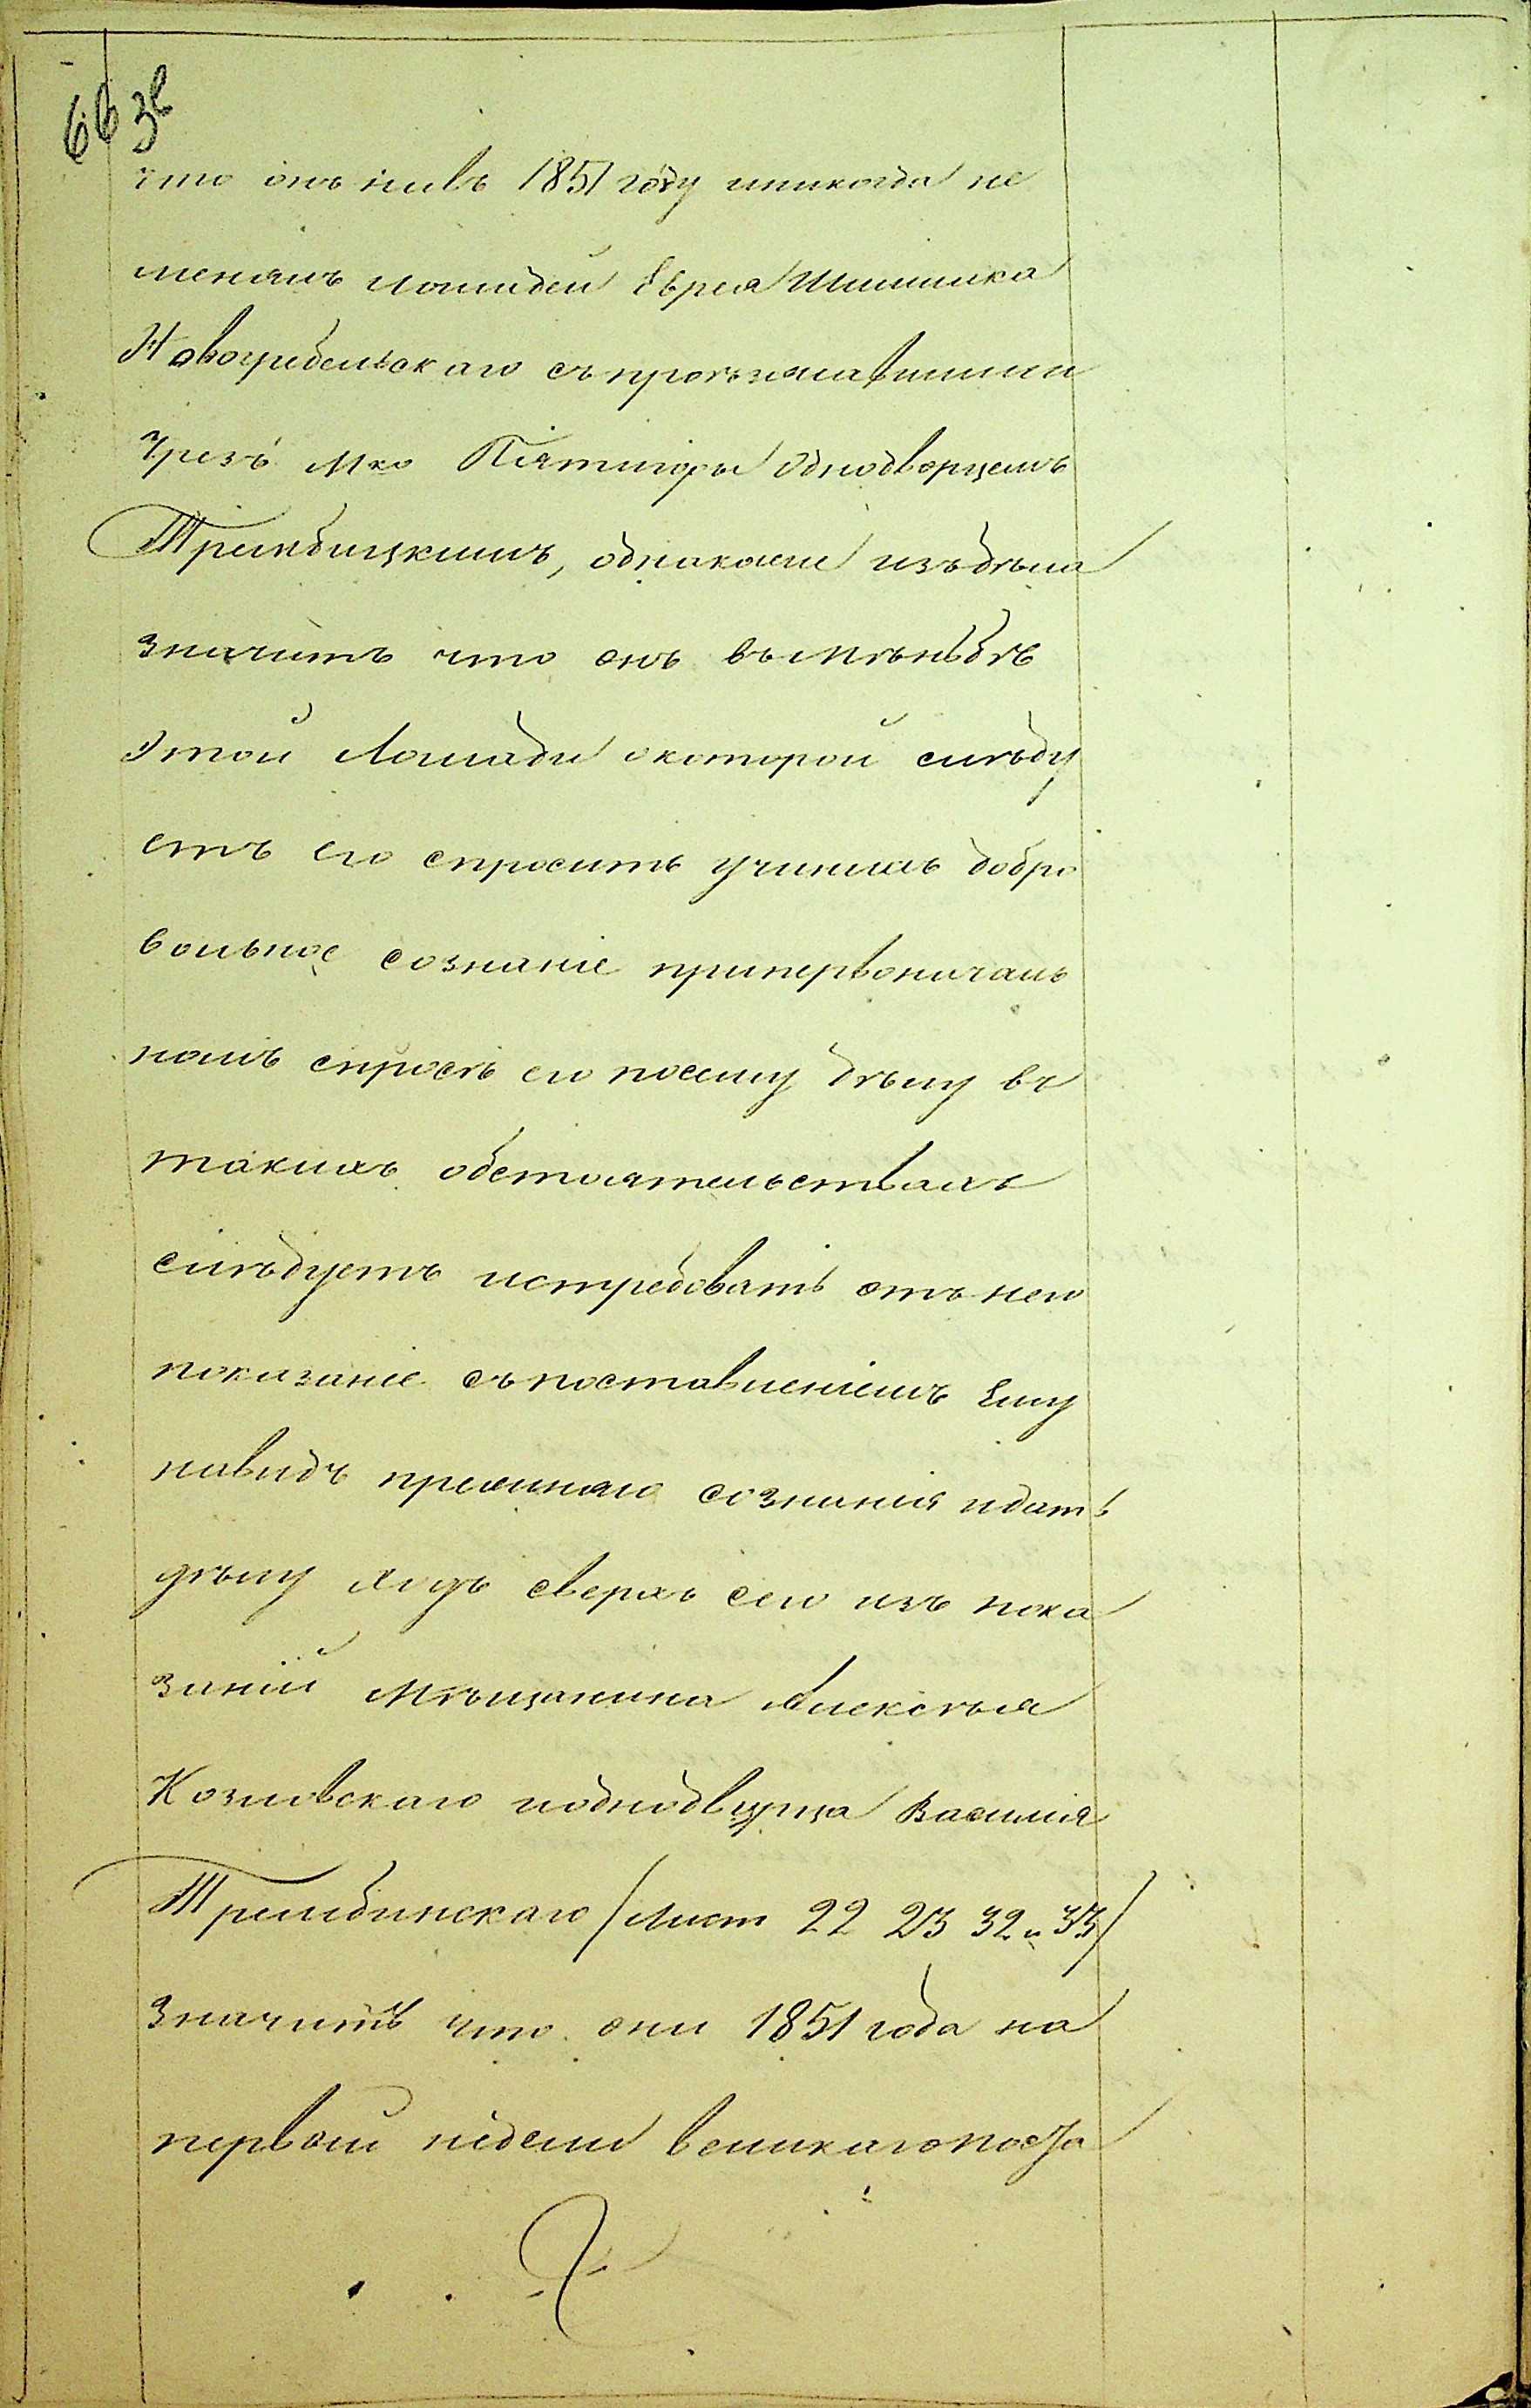 66 3е
что онъ нивъ 1851 году иникогда не
менялъ лошадей Еврея Шимшка
Новогребельскаго съ проѣзжавшими
Чрезъ Мко Пятигоры Однодворцемъ
Трембицкимъ, однакоже изъ дѣла
значитъ что онъ въ мѣнѣ бъ
Этой Лошади о которой слѣду
етъ его спросить учинилъ добро
вольное сознаніе при первоначаль
номъ спросѣ его по сему дѣлу въ
такихъ обстоятельствахъ
слѣдуетъ истребовать отъ него
показаніе съ поставленіемъ Ему
навидъ прежняго сознанія и дать
дѣлу ходъ сверхъ сего изъ пока
заній Мѣщанина Алексѣя
Козловскаго и однодворца Василія
Трембинскаго /Лист 22 23 32 и 33/
Значитъ что они 1851 года на
первой недели великаго поста